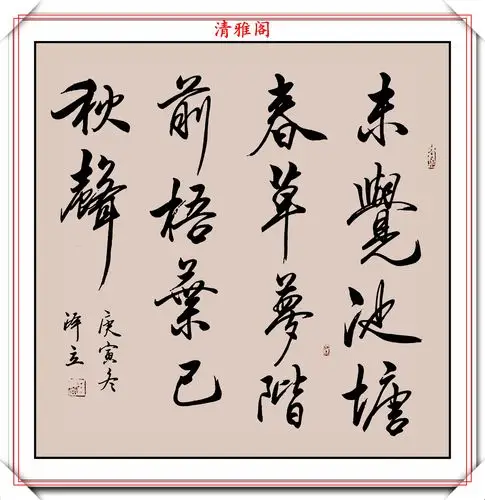 清雅阁
未覺池塘
春草夢階
前梧葉已
秋聲
庚寅冬
泽立